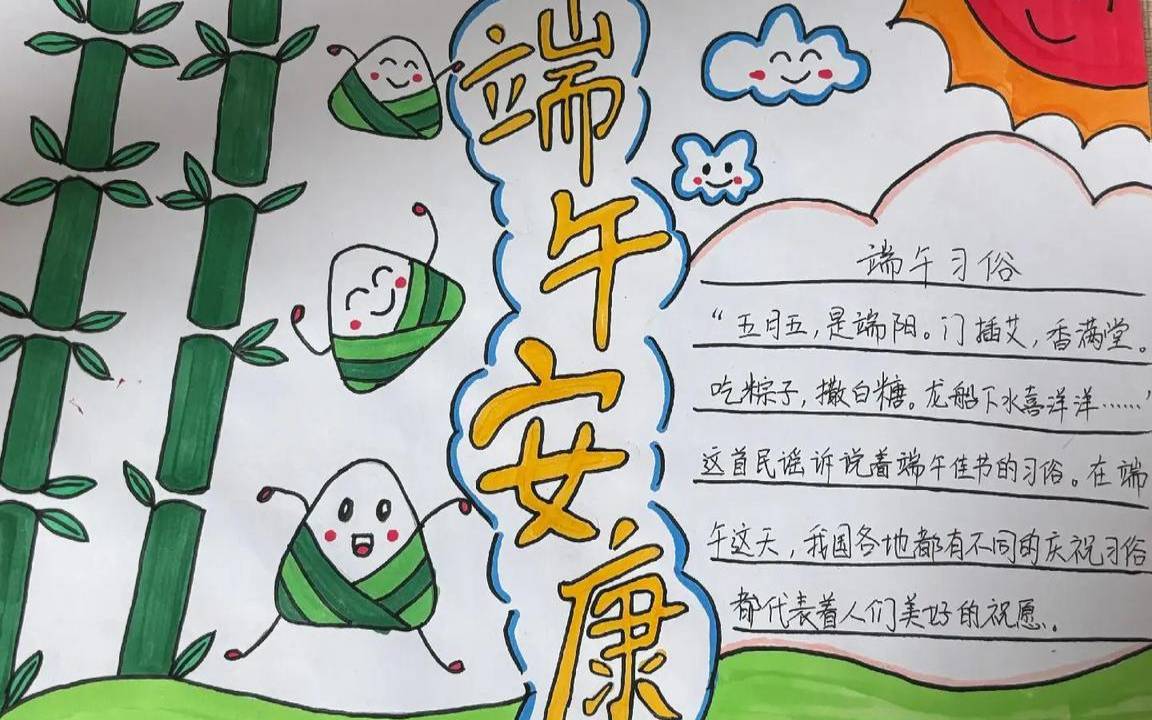 端午安康
端午习俗
“五月五，是端阳。门插艾，香满堂。
吃粽子，撒白糖。龙船下水喜洋洋……”
这首民谣诉说着端午佳节的习俗。在端
午这天，我国各地都有不同的庆祝习俗
都代表着人们美好的祝愿。